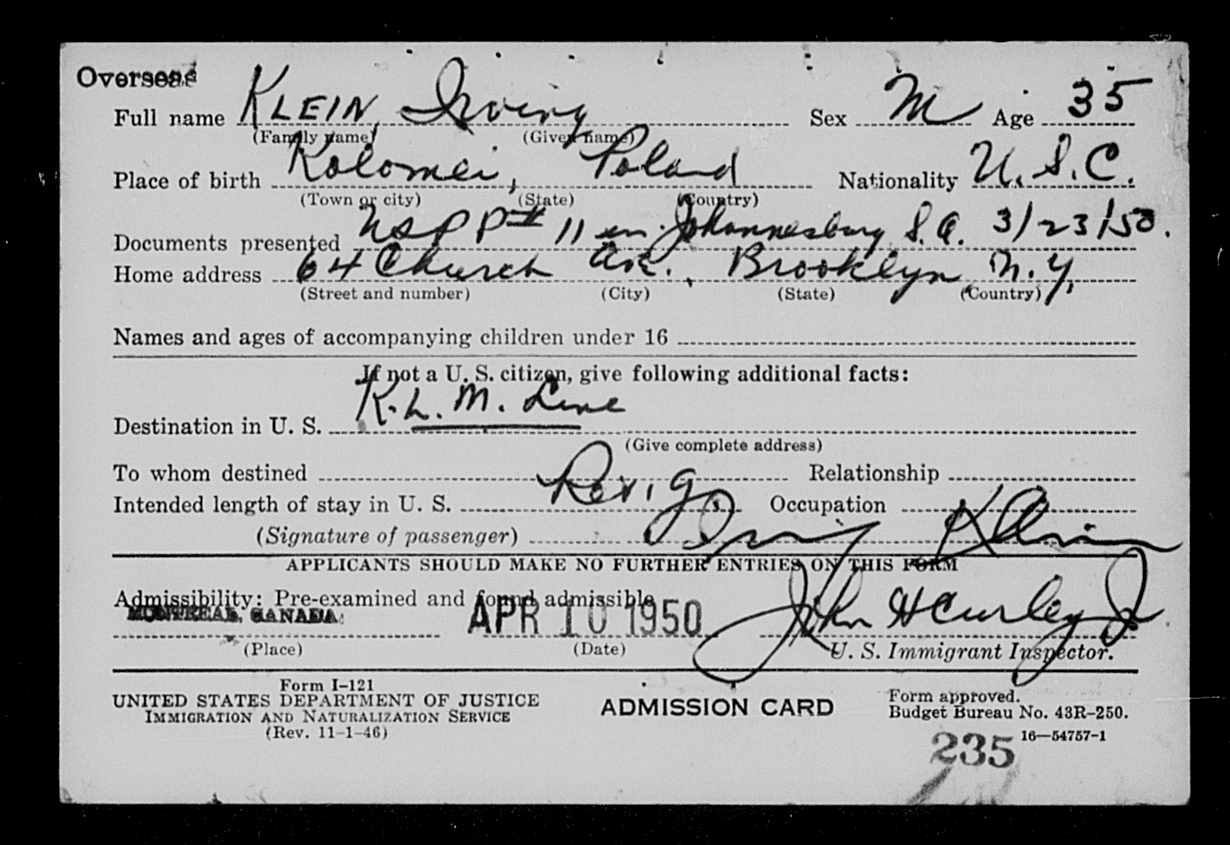 Overseas
Full name KLEIN, Irving Sex M Age 35
(Family name) (Given name)
Place of birth Kolomei, Poland Nationality U.S.C.
(Town or city) (State) (Country)
Documents presented USPP# 11 en Johannesburg S.A. 3/23/50.
Home address 64 Church Ave., Brooklyn, N.Y.
(Street and number) (City) (State) (Country)
Names and ages of accompanying children under 16
If not a U. S. citizen, give following additional facts:
K.L.M. Line
Destination in U. S.
(Give complete address)
To whom destined Relationship
Intended length of stay in U. S. Occupation
(Signature of passenger) Irving Klein
APPLICANTS SHOULD MAKE NO FURTHER ENTRIES ON THIS FORM
Admissibility: Pre-examined and found admissible
MONTREAL, CANADA. APR 10 1950 John H Curley Jr
(Place) (Date) U. S. Immigrant Inspector.
Form I-121
UNITED STATES DEPARTMENT OF JUSTICE
IMMIGRATION AND NATURALIZATION SERVICE
(Rev. 11-1-46)
ADMISSION CARD
Form approved.
Budget Bureau No. 43R-250.
235 16—54757-1